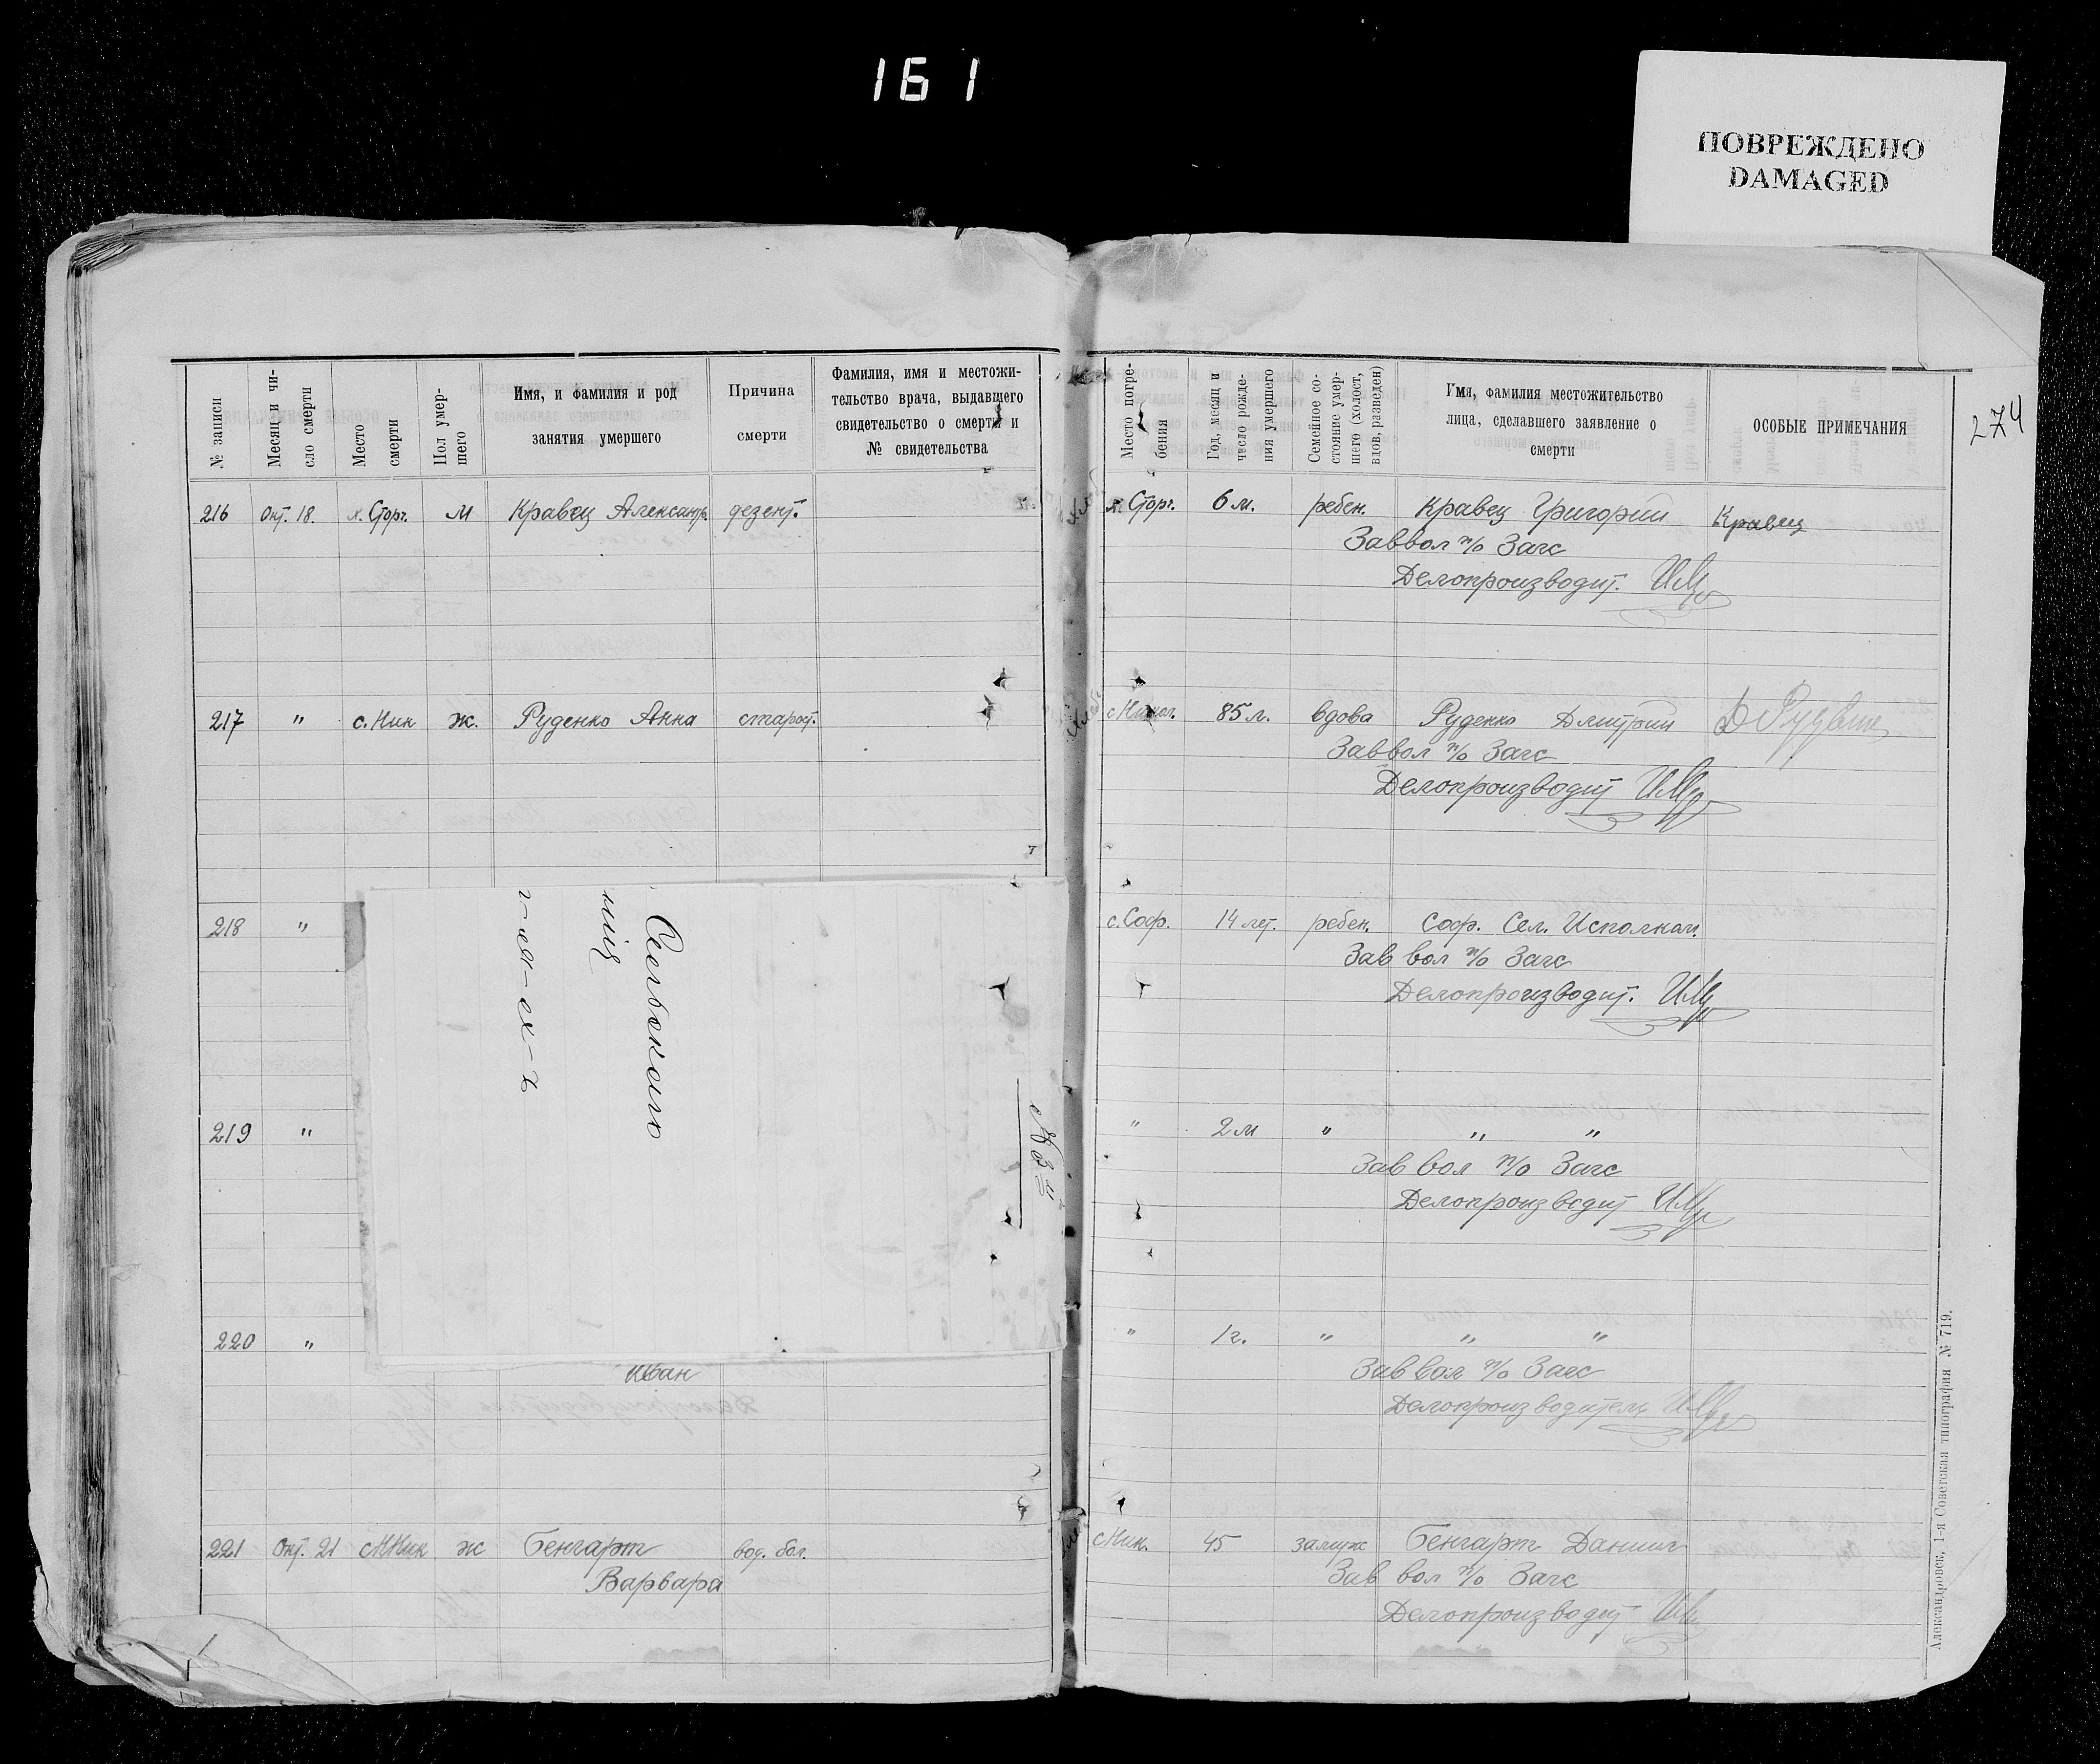 161
ПОВРЕЖДЕНО
DAMAGED
274
№ записи
Месяц и чи-
сло смерти
Место
смерти
Пол умер-
шего
Имя, и фамилия и род
занятия умершего
Причина
смерти
Фамилия, имя и местожи-
тельство врача, выдавшего
свидетельство о смерти и
№ свидетельства
Место погре-
бения
Год, месяц и
число рожде-
ния умершего
Семейное со-
стояние умер-
шего (холост,
вдов, разведен)
Имя, фамилия местожительство
лица, сделавшего заявление о
смерти
ОСОБЫЕ ПРИМЕЧАНИЯ
216 Окт. 18. х. Сторч. м Кравец Александр. дезент. х. Сторч. 6 м. ребен. Кравец Григорий Кравец
Заввол п/о Загс
Делопроизводит.
217 " с. Ник ж. Руденко Анна старост. с Никол. 85 л. вдова Руденко Дмитрий
Заввол п/о Загс
Делопроизводит
218 " с. Соф. 14 лет. ребен. Соф. Сел. Исполком.
Зав вол п/о Загс
Делопроизводит.
Сельского
219 " " 2 м " " "
Зав вол п/о Загс
Делопроизводит
220 " " 1 г. " " "
Иван
Зав вол п/о Загс
Делопроизводитель
221 Окт. 21 с Ник ж Бенгарт вод. бол. с Ник. 45 замуж Бенгарт Даниил
Варвара
Зав вол п/о Загс
Делопроизводит
Александровск, 1-я Советская типография № 719.